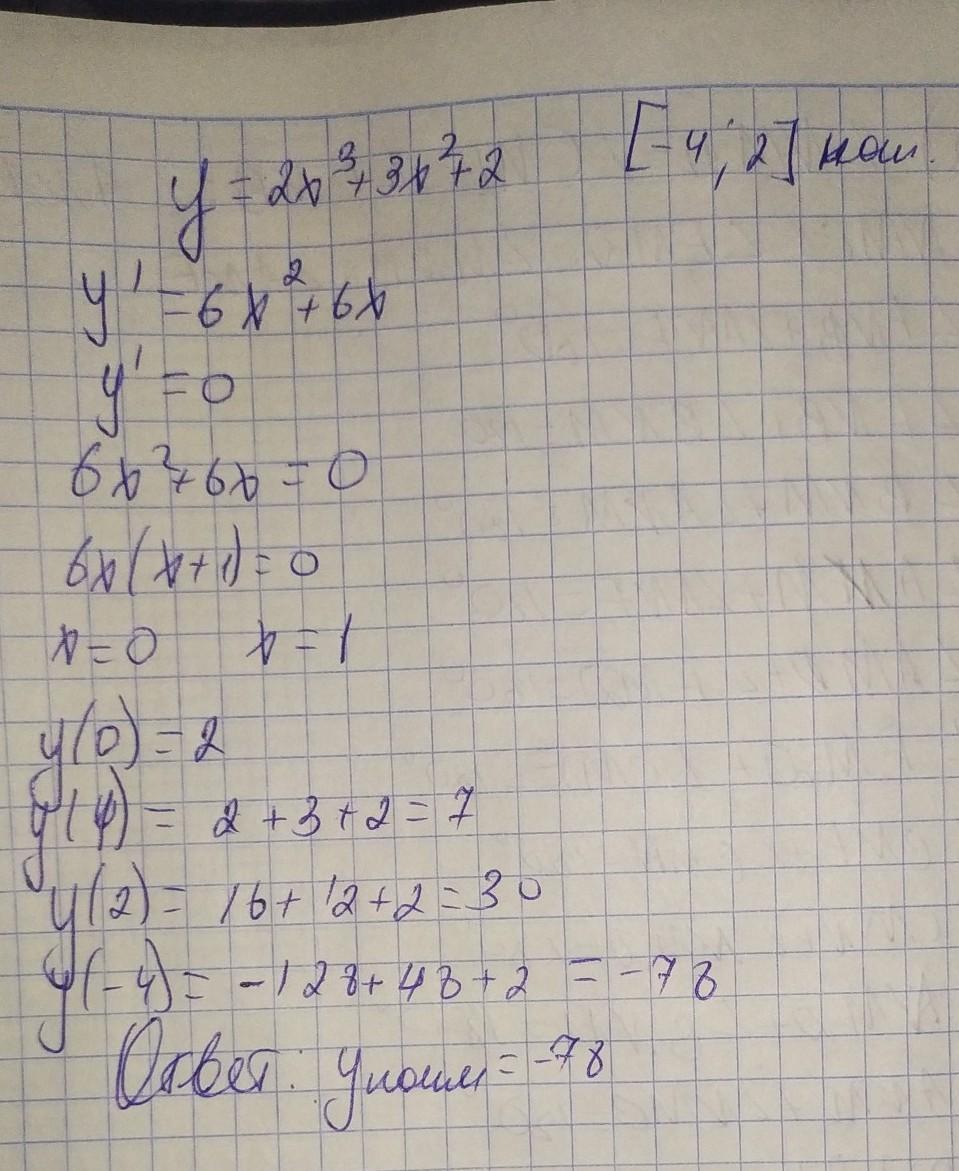 y = 2x³+3x²+2 [-4; 2] наим.
y' = 6x²+6x
y' = 0
6x²+6x = 0
6x(x+1) = 0
x = 0 x = 1
y(0) = 2
y(1) = 2+3+2 = 7
y(2) = 16+12+2 = 30
y(-4) = -128+48+2 = -78
Ответ: yнаим = -78